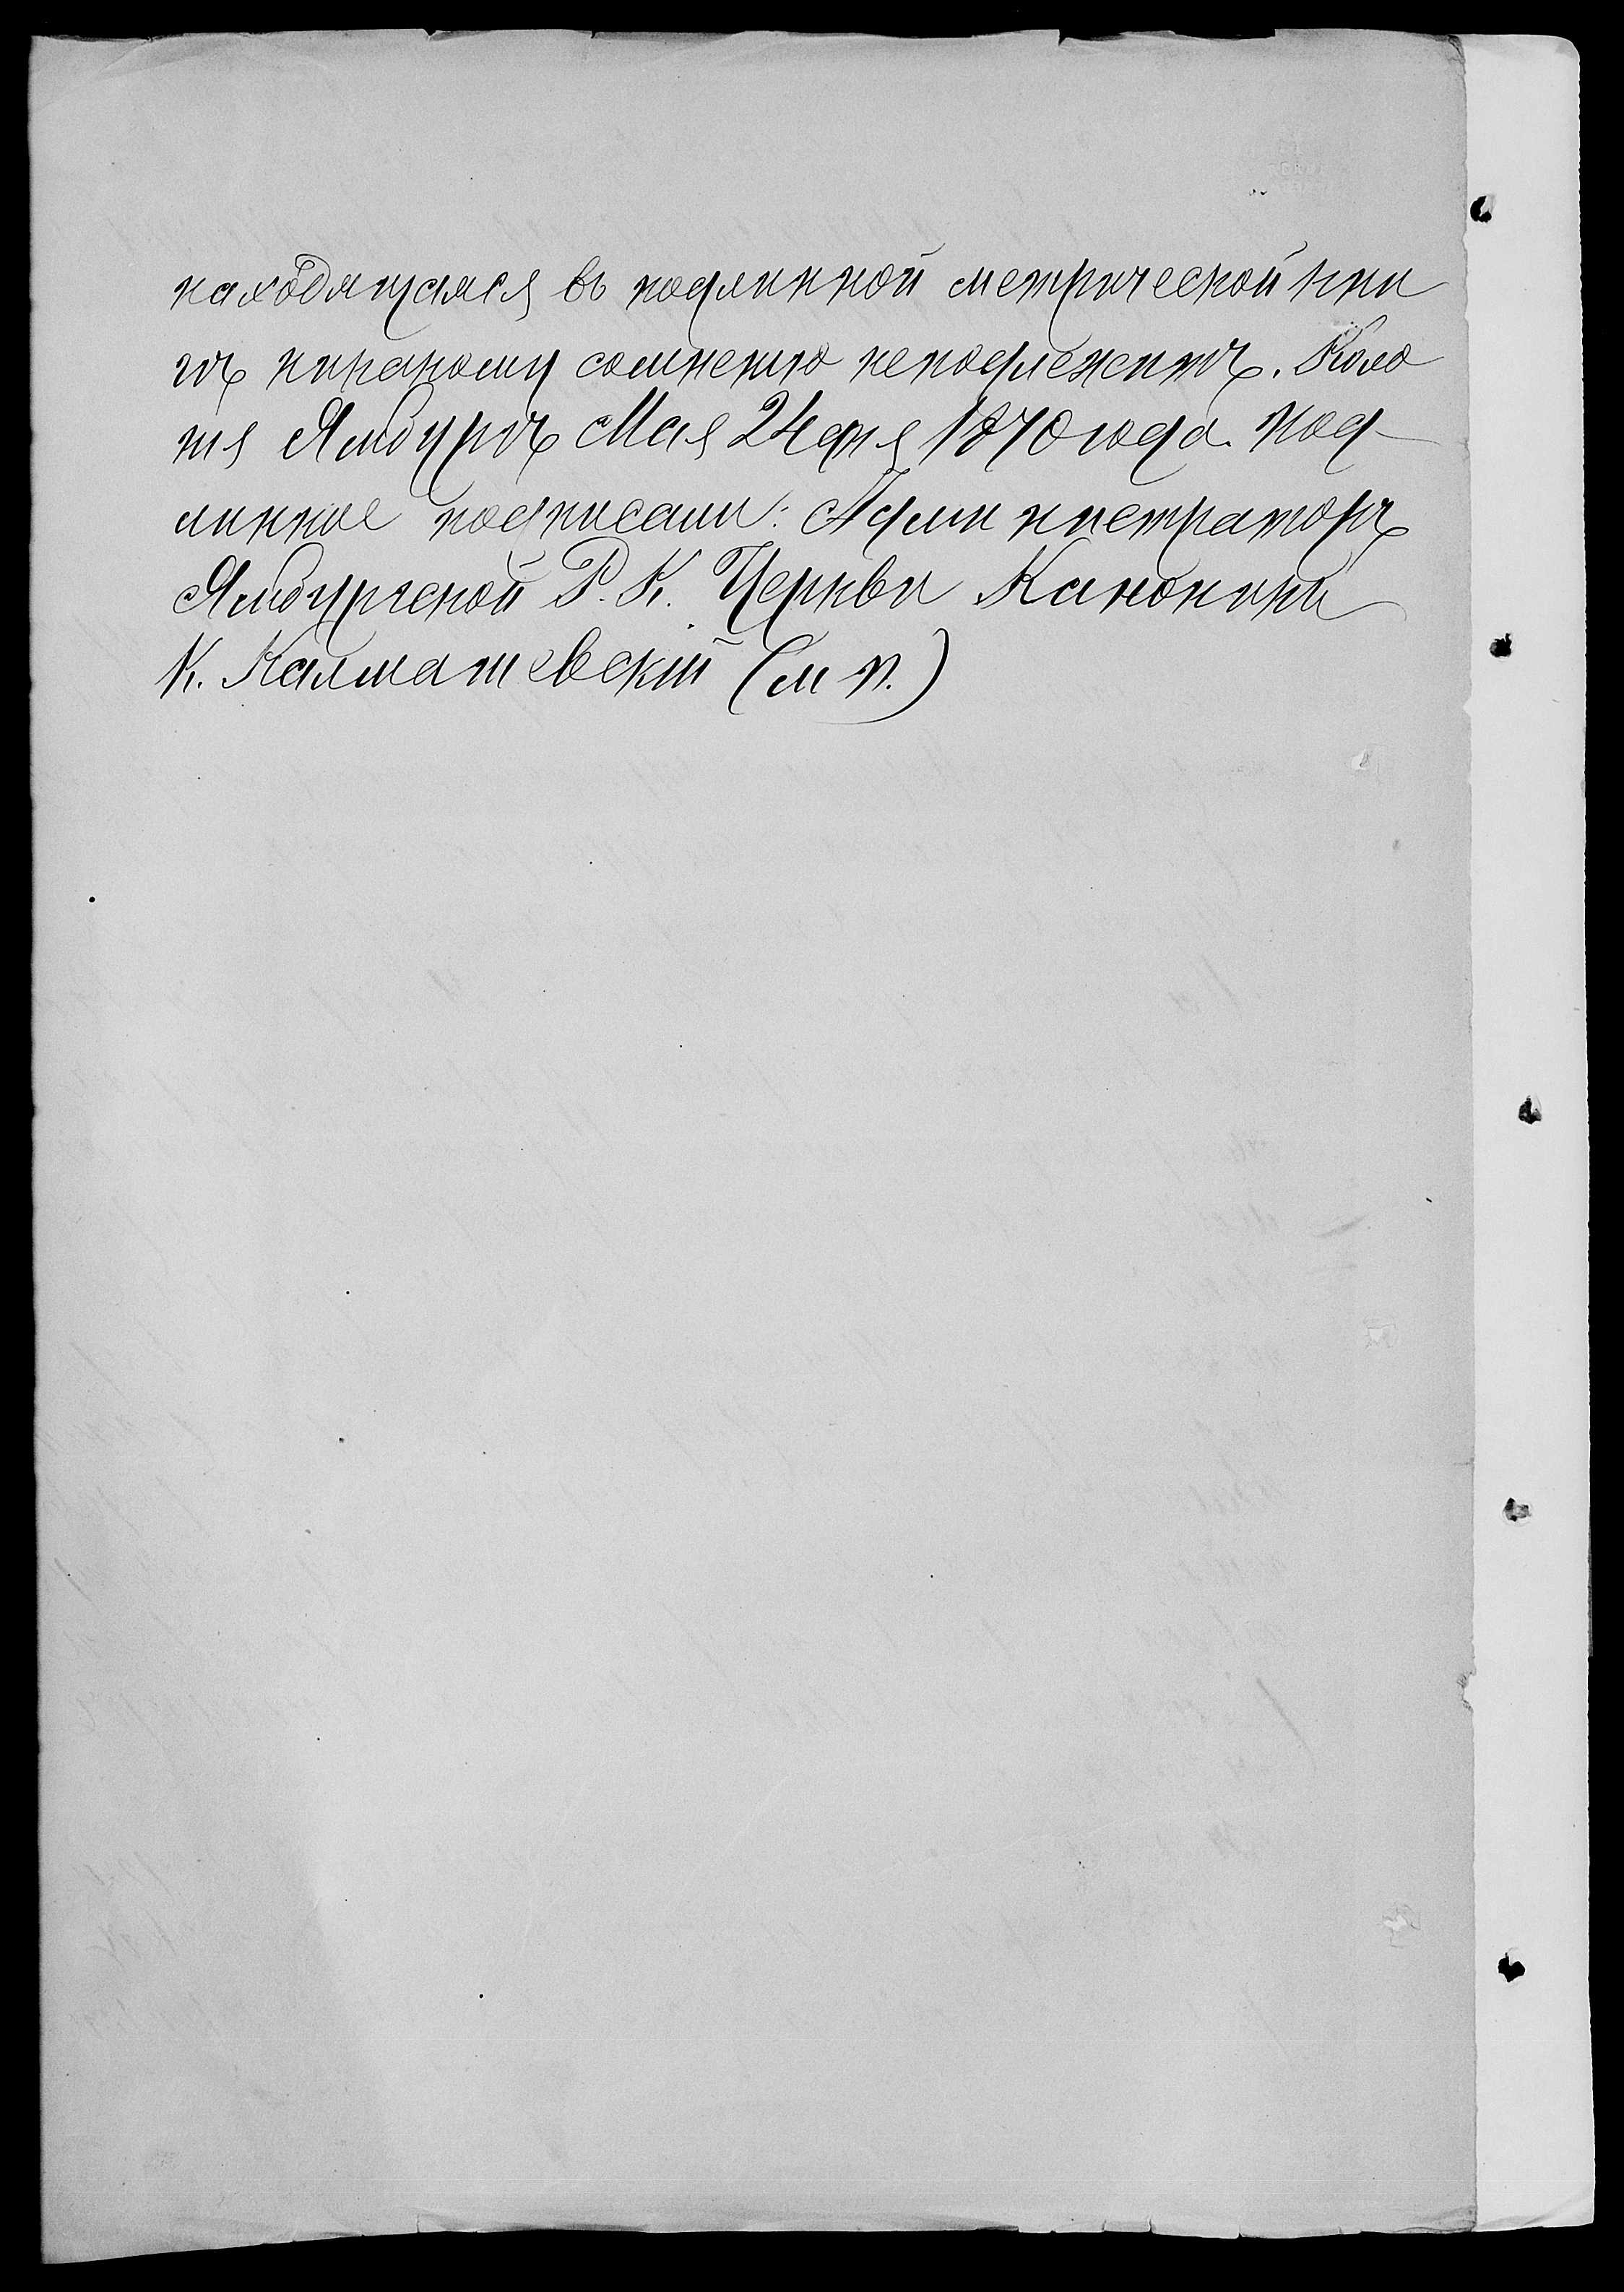 находящаяся въ подлинной метрической кни
гѣ никакому сомнению неподлежитъ. Коло
ния Ямбургъ Мая 24 дня 1870 года. Под-
линное подписали: Администраторъ
Ямбургской Р. К. Церкви Каноникъ
К. Калмашевскій (м п.)